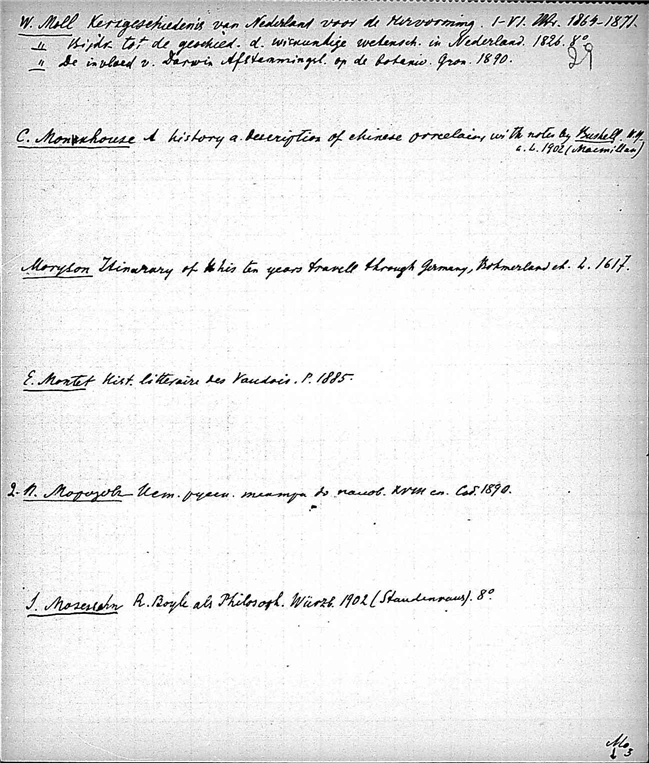 W. Moll Kerkgeschiedenis van Nederland voor de Hervorming. I-VI. Utr. 1864-1871.
" Bijdr. tot de geschied. d. wiskundige wetensch. in Nederland. 1826. 8°
" De invloed v. Darwin Afstammingsl. op de botanie. Gron. 1890.
29
C. Monkhouse A history a. description of chinese porcelain, with notes by Bushell.
a. L. 1902 (Macmillan)
Moryson Itinerary of his ten years travell through Germany, Bohmerland et. L. 1617.
E. Montet Hist. litteraire des Vaudois. P. 1885.
2. П. Морозовъ Ист. русск. театра до полов. XVIII ст. Спб. 1890.
J. Mosessohn R. Boyle als Philosoph. Würzb. 1902 (Staudenraus). 8°
Mo
3